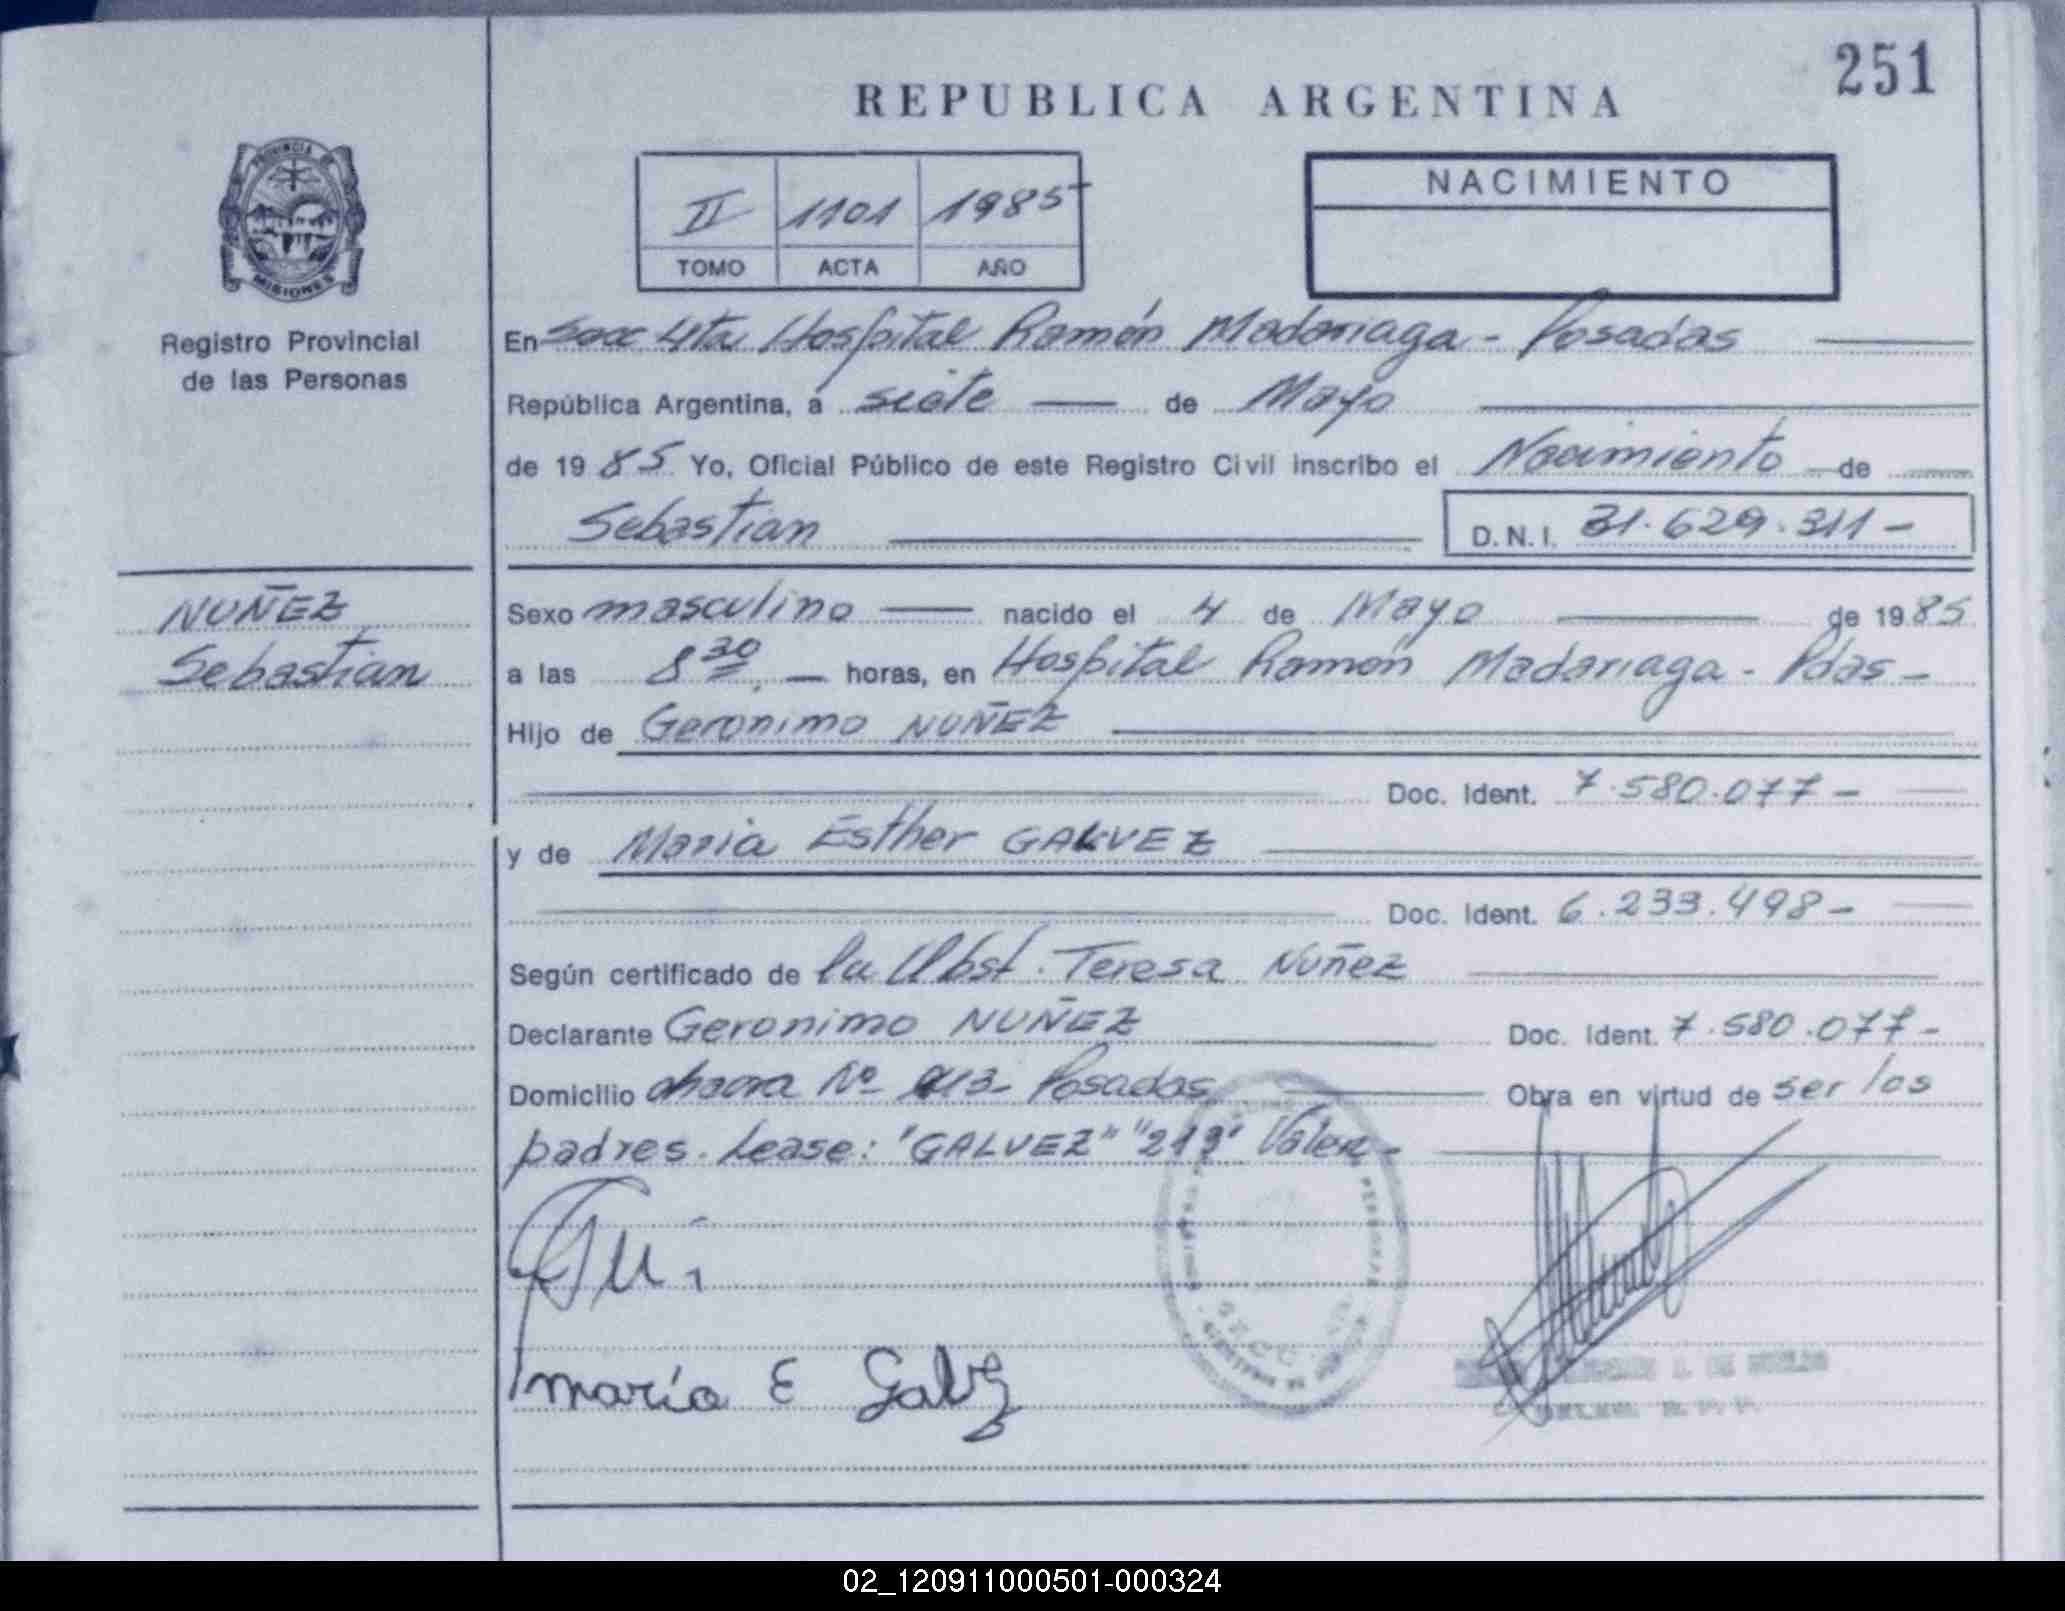 251
REPUBLICA ARGENTINA
II 1101 1985
TOMO ACTA AÑO
NACIMIENTO
PROVINCIA DE
MISIONES
Registro Provincial
de las Personas
En Secc 4ta Hospital Ramón Madariaga - Posadas
República Argentina, a siete de Mayo
de 1985 Yo, Oficial Público de este Registro Civil inscribo el Nacimiento de
Sebastian D.N.I. 31.629.311-
NUÑEZ
Sebastian
Sexo masculino nacido el 4 de Mayo de 1985
a las 8 30 horas, en Hospital Ramón Madariaga - Pdas -
Hijo de Geronimo NUÑEZ
Doc. Ident. 7.580.077-
y de Maria Esther GALVEZ
Doc. Ident. 6.233.498-
Según certificado de la Obst. Teresa Nuñez
Declarante Geronimo NUÑEZ Doc. Ident. 7.580.077-
Domicilio chacra Nº 213- Posadas Obra en virtud de ser los
padres. Lease: "GALVEZ" "213" Valen -
maría E Galvez
02_120911000501-000324